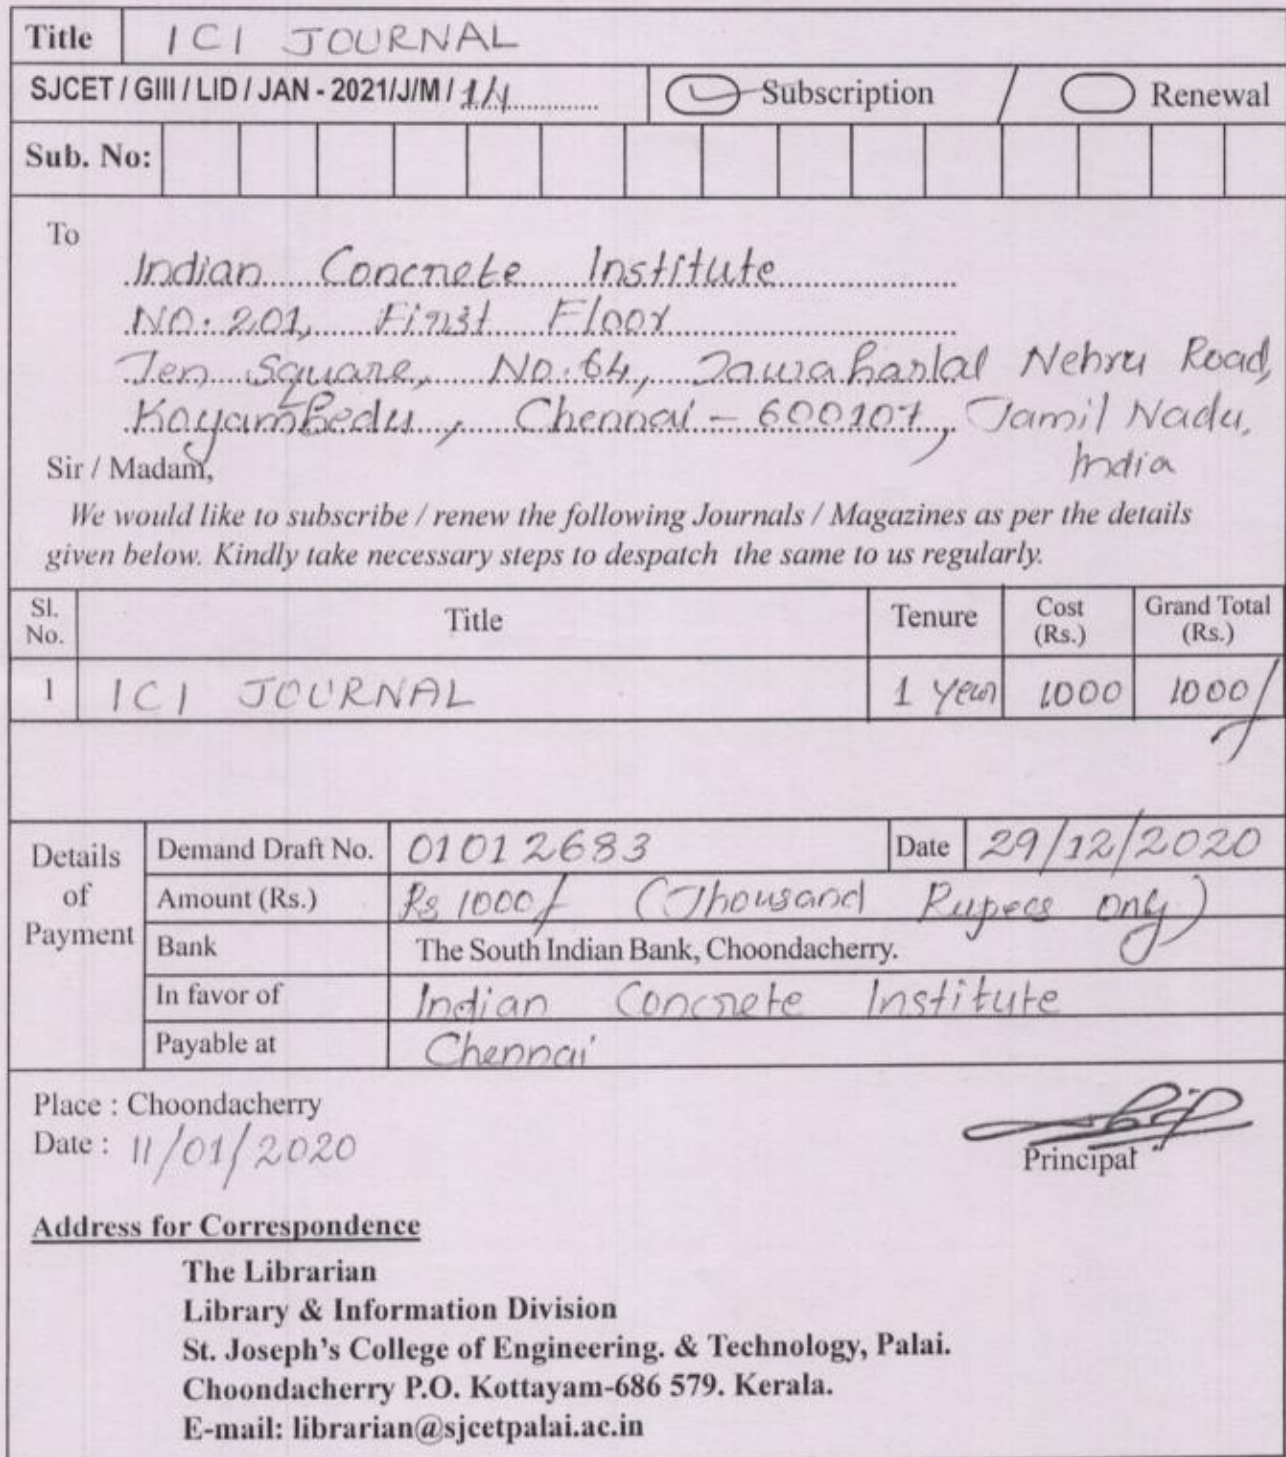 Title ICI JOURNAL
SJCET / GIII / LID / JAN - 2021/J/M/ 14 Subscription / Renewal
Sub. No:
To
Indian Concrete Institute
No: 201, First Floor
Ten Square, No: 64, Jawaharlal Nehru Road,
Koyambedu, Chennai - 600107, Tamil Nadu,
India
Sir / Madam,
We would like to subscribe / renew the following Journals / Magazines as per the details
given below. Kindly take necessary steps to despatch the same to us regularly.
Sl. No. Title Tenure Cost (Rs.) Grand Total (Rs.)
1 ICI JOURNAL 1 Year 1000 1000/
Details of Payment
Demand Draft No. 01012683 Date 29/12/2020
Amount (Rs.) Rs 1000/- (Thousand Rupees only)
Bank The South Indian Bank, Choondacherry.
In favor of Indian Concrete Institute
Payable at Chennai
Place : Choondacherry
Date : 11/01/2020
Principal
Address for Correspondence
The Librarian
Library & Information Division
St. Joseph's College of Engineering. & Technology, Palai.
Choondacherry P.O. Kottayam-686 579. Kerala.
E-mail: librarian@sjcetpalai.ac.in